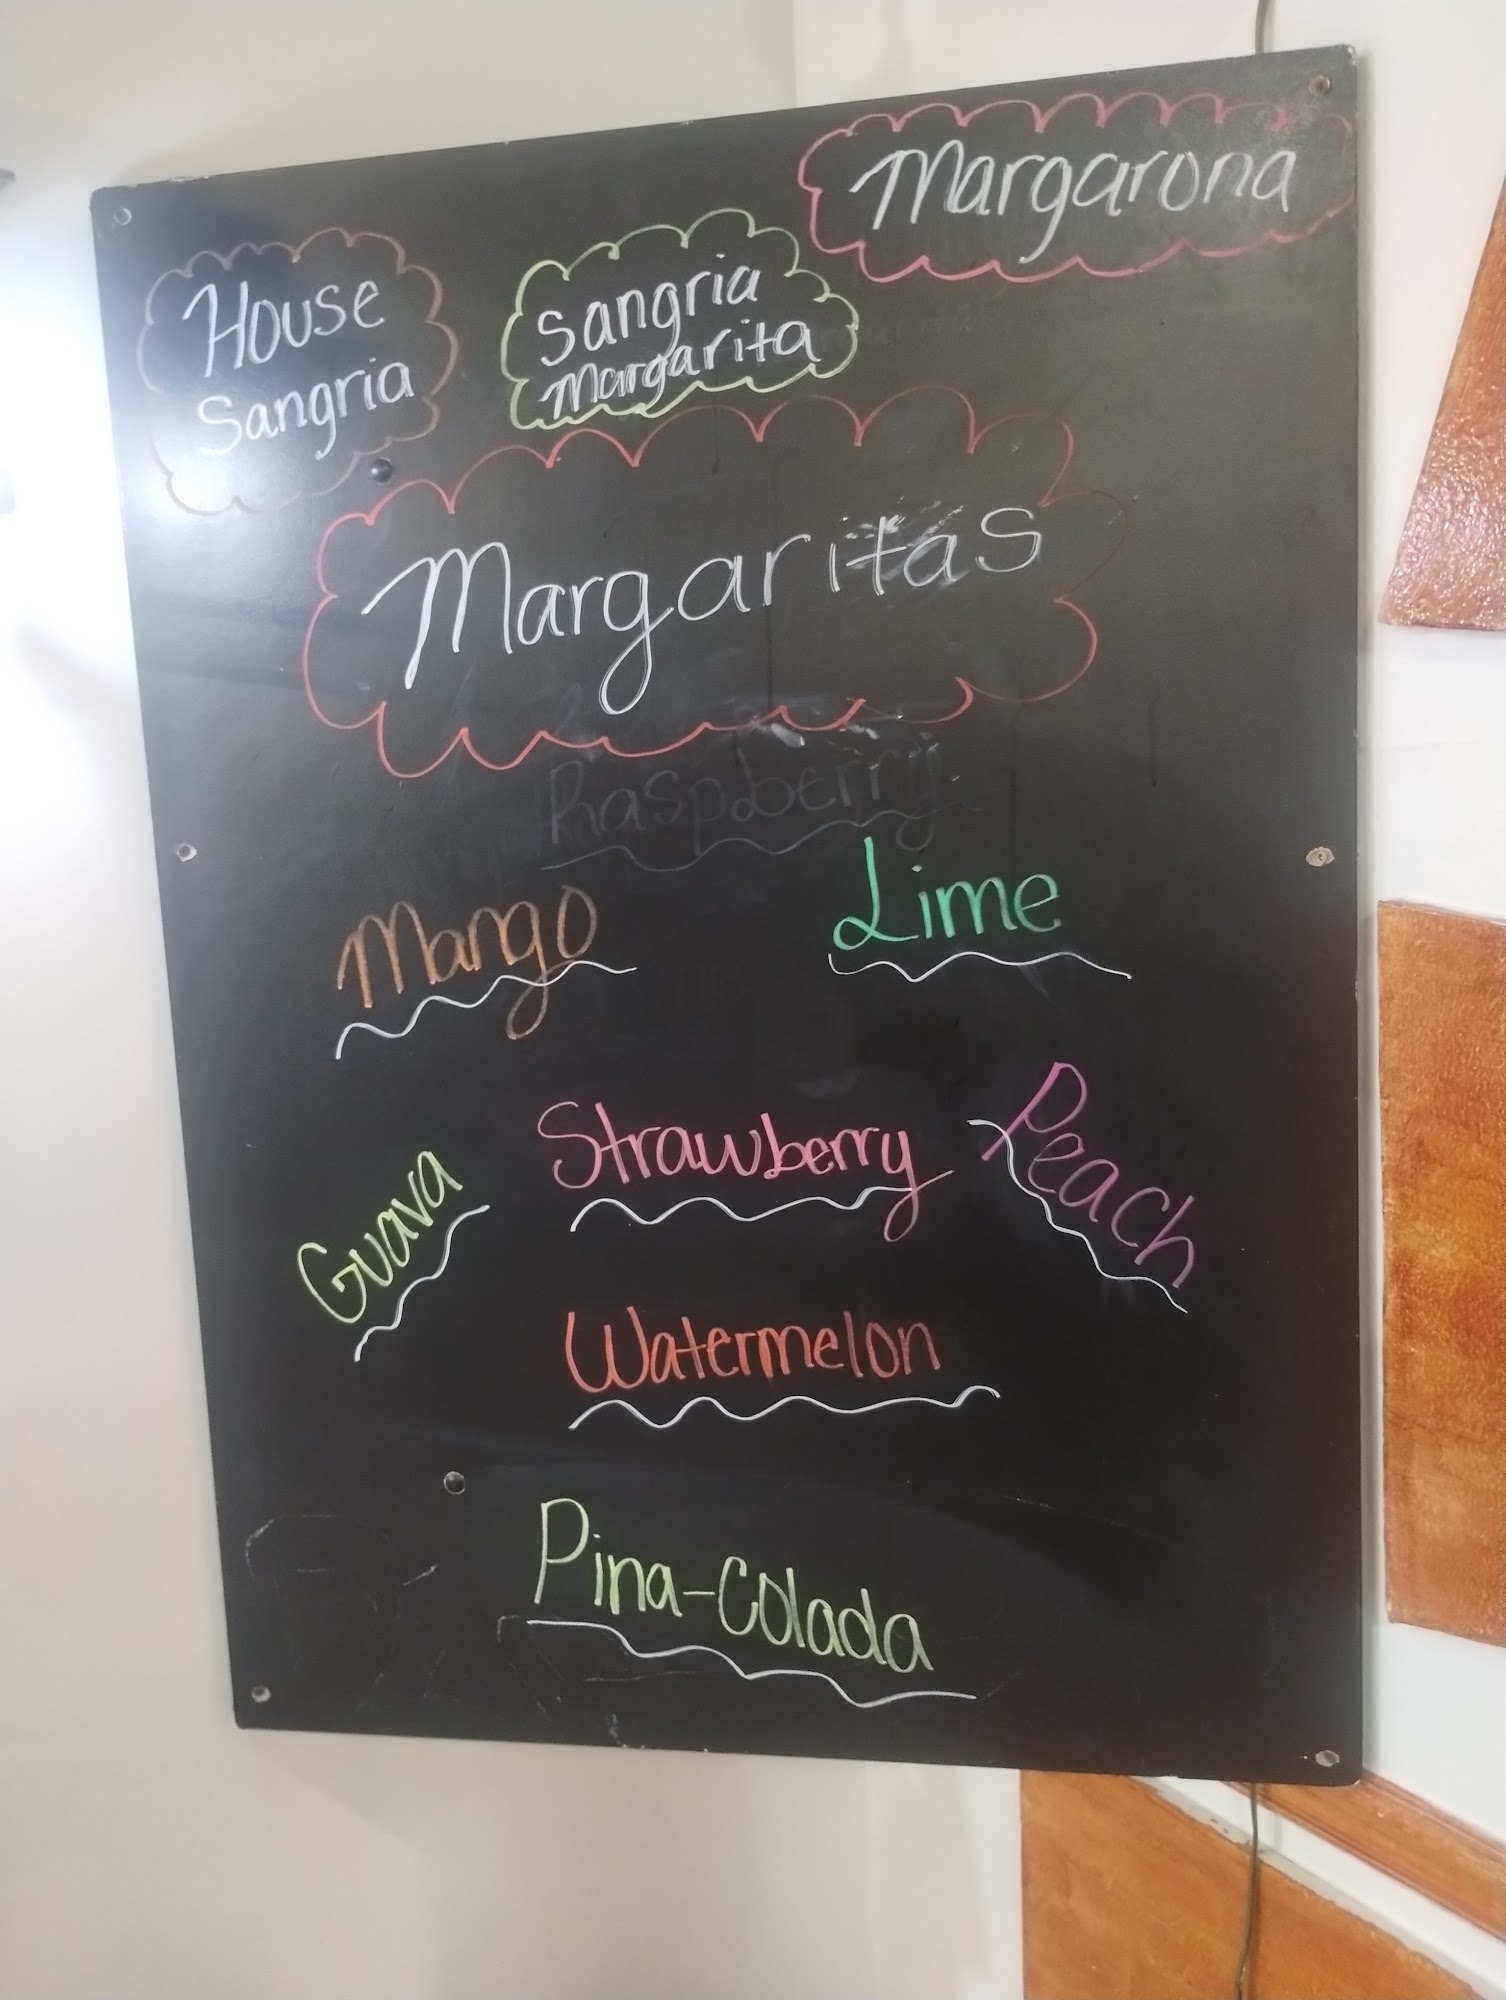 Margarona
House
Sangria
Sangria
Margarita
Margaritas
Raspberry
Mango
Lime
Strawberry
Peach
Guava
Watermelon
Pina-Colada